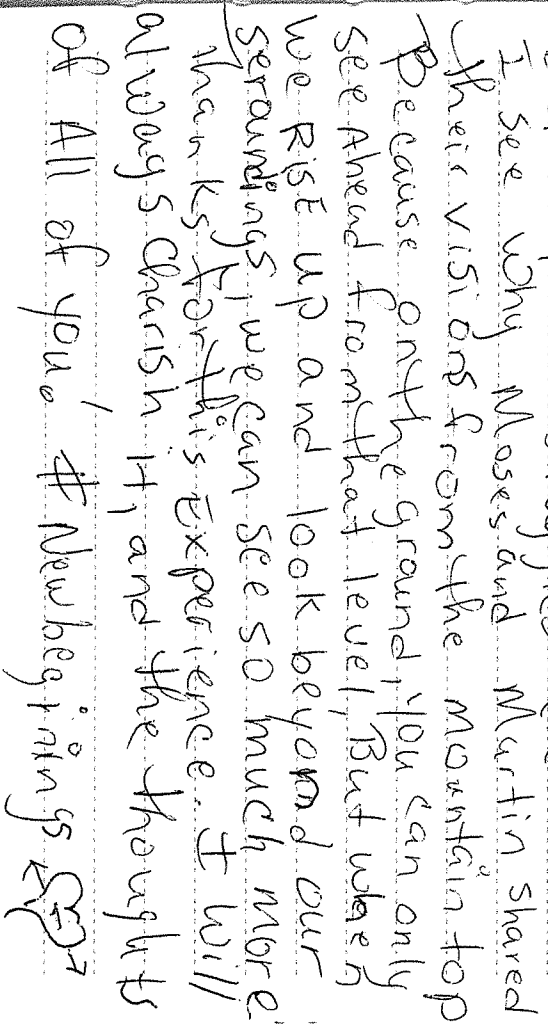 I see why Moses and Martin shared
their visions from the mountain top
Because on the ground, you can only
see Ahead from that level, But when
we RisE up and look beyond our
seroundings, we can see so much more.
thanks for this Experience. I will
always charish it, and the thoughts
of All of you! #Newbeginings